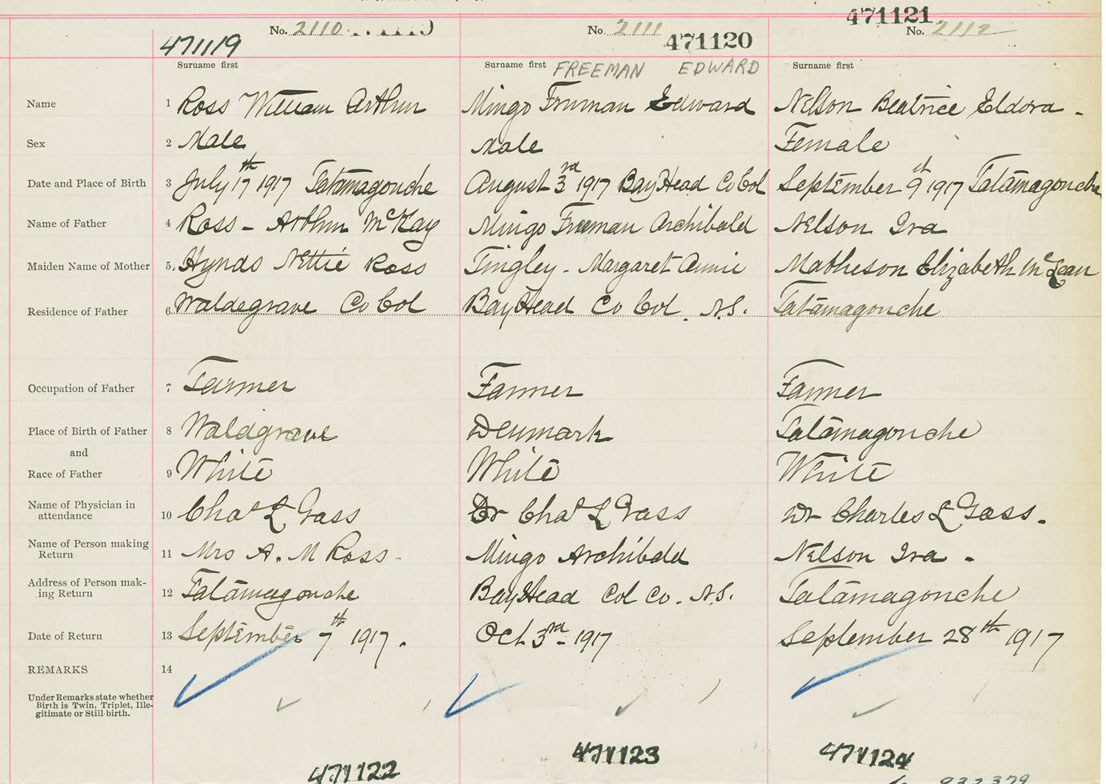 471121
No. 2110
No. 2111
No. 2112
471119
471120
Surname first
Surname first FREEMAN EDWARD
Surname first
Name 1 Ross William Arthur
Mingo Fruman Edward
Nelson Beatrice Eldora -
Sex 2 Male
Male
Female
Date and Place of Birth 3 July 17th 1917 Tatamagouche
August 3rd 1917 Bay Head Co Col
September 9st 1917 Tatamagouche
Name of Father 4 Ross - Arthur McKay
Mingo Freeman Archibald
Nelson Ira
Maiden Name of Mother 5. Hynds Nettie Ross
Tingley - Margaret Annie
Matheson Elizabeth McLean
Residence of Father 6 Waldegrave Co Col
Bay Head Co Col. N.S.
Tatamagouche
Occupation of Father 7 Farmer
Farmer
Farmer
Place of Birth of Father 8 Waldgrave
Denmark
Tatamagouche
and
Race of Father 9 White
White
White
Name of Physician in
attendance 10 Chas L Gass
Dr Chas L Gass
Dr Charles L Gass.
Name of Person making
Return 11 Mrs A. M Ross -
Mingo Archibald
Nelson Ira -
Address of Person mak-
ing Return 12 Tatamagouche
Bay Head Col Co. N.S.
Tatamagouche
Date of Return 13 September 7th 1917.
Oct 3rd 1917
September 28th 1917
REMARKS 14
Under Remarks state whether
Birth is Twin, Triplet, Ille-
gitimate or Still-birth.
471122
471123
471124